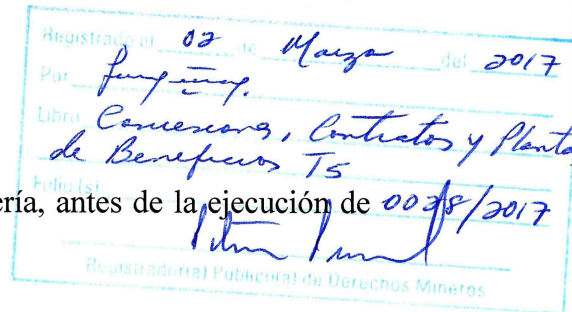 Registrado el 02 de Marzo del 2017
Por
Libro Concesiones, Contratos y Planta
de Beneficios T5
Folio (s)
ería, antes de la ejecución de 0028/2017
Registrador(a) Public(a) de Derechos Mineros